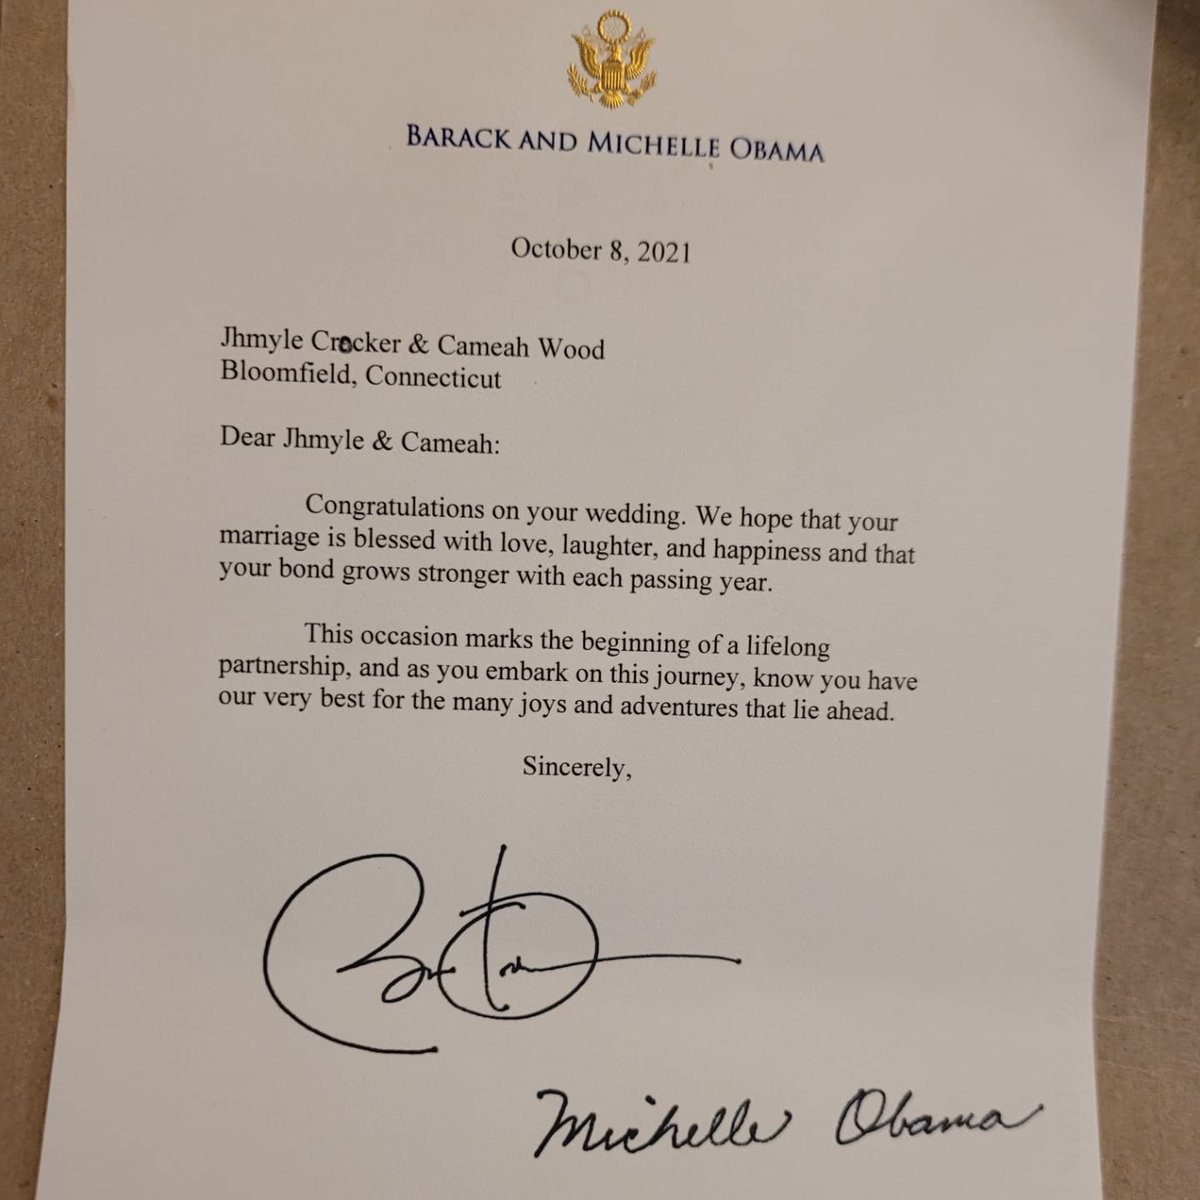 BARACK AND MICHELLE OBAMA
October 8, 2021
Jhmyle Crocker & Cameah Wood
Bloomfield, Connecticut
Dear Jhmyle & Cameah:
Congratulations on your wedding. We hope that your
marriage is blessed with love, laughter, and happiness and that
your bond grows stronger with each passing year.
This occasion marks the beginning of a lifelong
partnership, and as you embark on this journey, know you have
our very best for the many joys and adventures that lie ahead.
Sincerely,
Michelle Obama